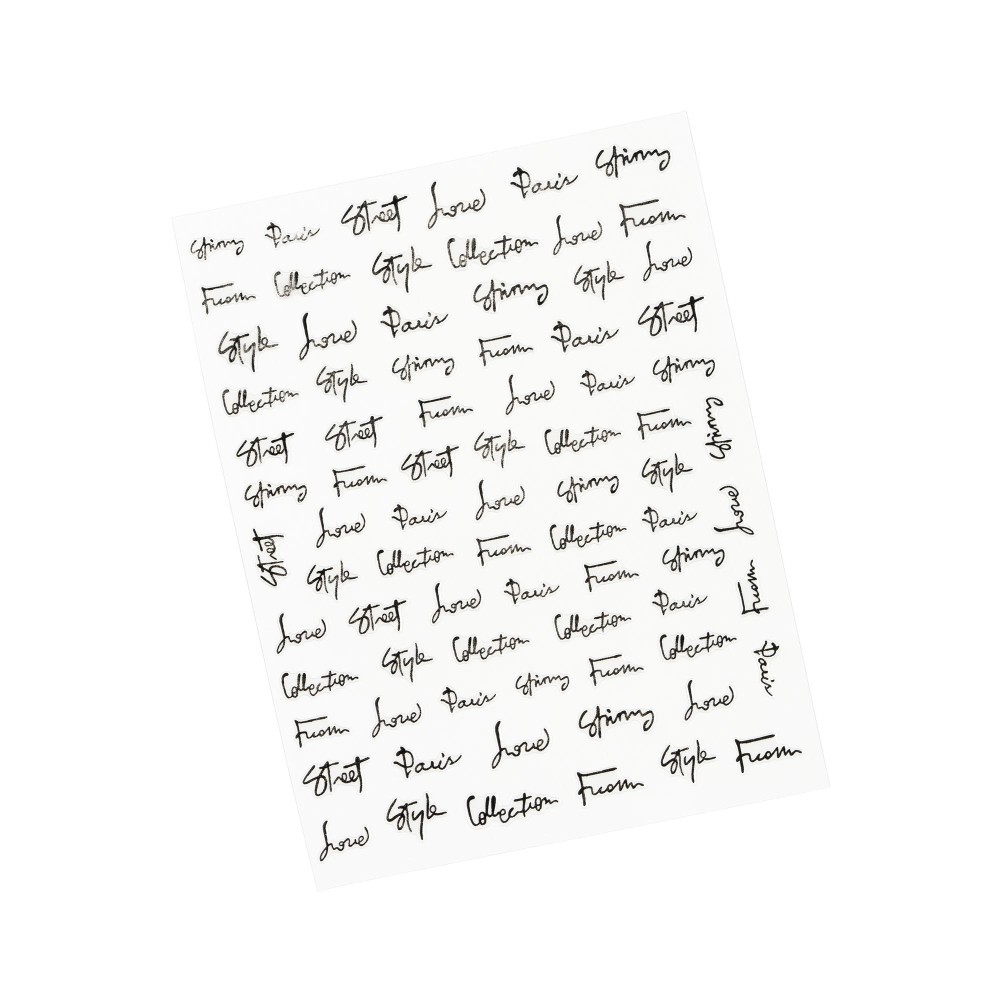 Spring Paris Street Love Paris Spring
From Collection Style Collection Love From
Style Love Paris Spring Style Love
Collection Style Spring From Paris Street
Street Street From Love Paris Spring
Spring From Street Style Collection From
Love Paris Love Spring Style
Style Collection From Collection Paris
Love Street Love Paris From Spring
Collection Style Collection Collection Paris
From Love Paris Spring From Collection
Street Paris Love Spring Love
Love Style Collection From Style From
Street
Spring
Love
From
Paris